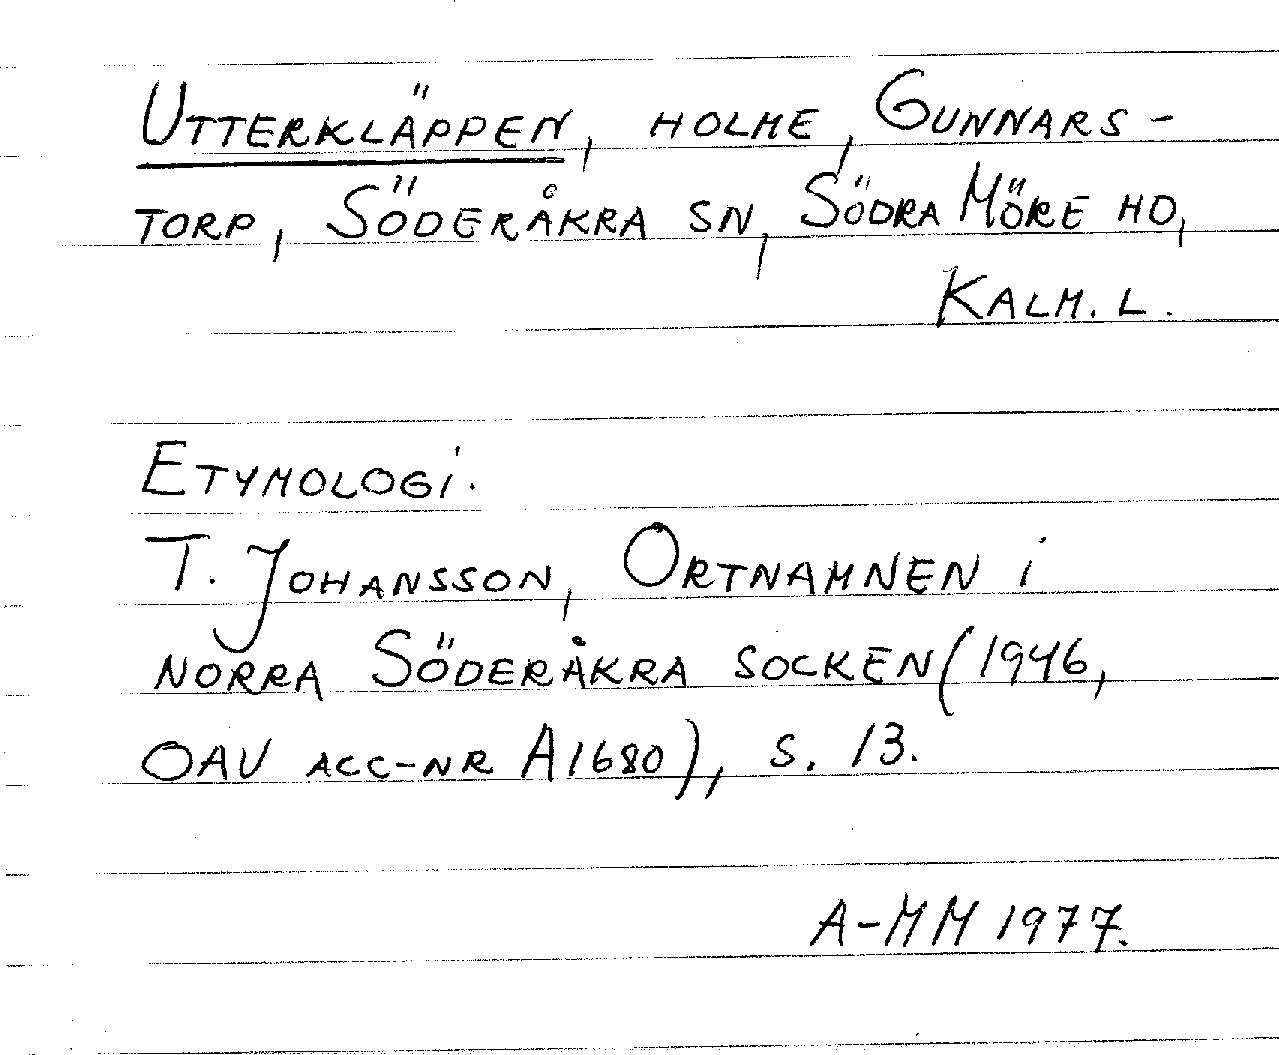 UTTERKLÄPPEN, HOLME, GUNNARS-
TORP, SÖDERÅKRA SN, SÖDRA MÖRE HD,
KALM. L.
ETYMOLOGI.
T. JOHANSSON, ORTNAMNEN i
NORRA SÖDERÅKRA SOCKEN (1946,
OAU ACC-NR A1680), S. 13.
A-MM 1977.